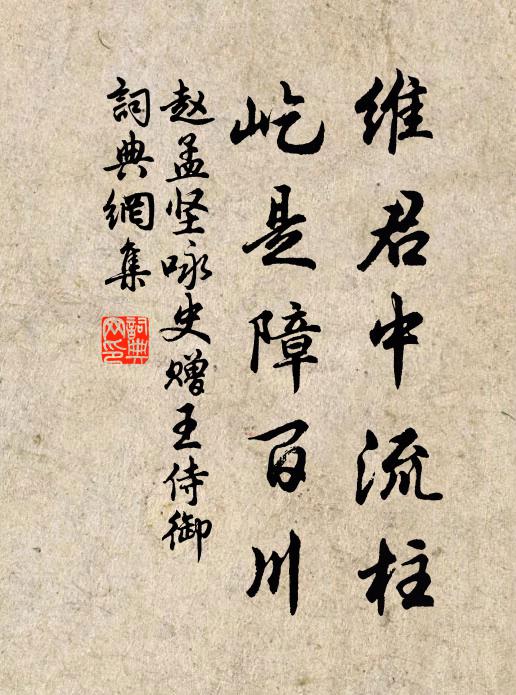 维君中流柱
屹是障百川
赵孟坚咏史赠王侍御
詞典網集
詞典網印